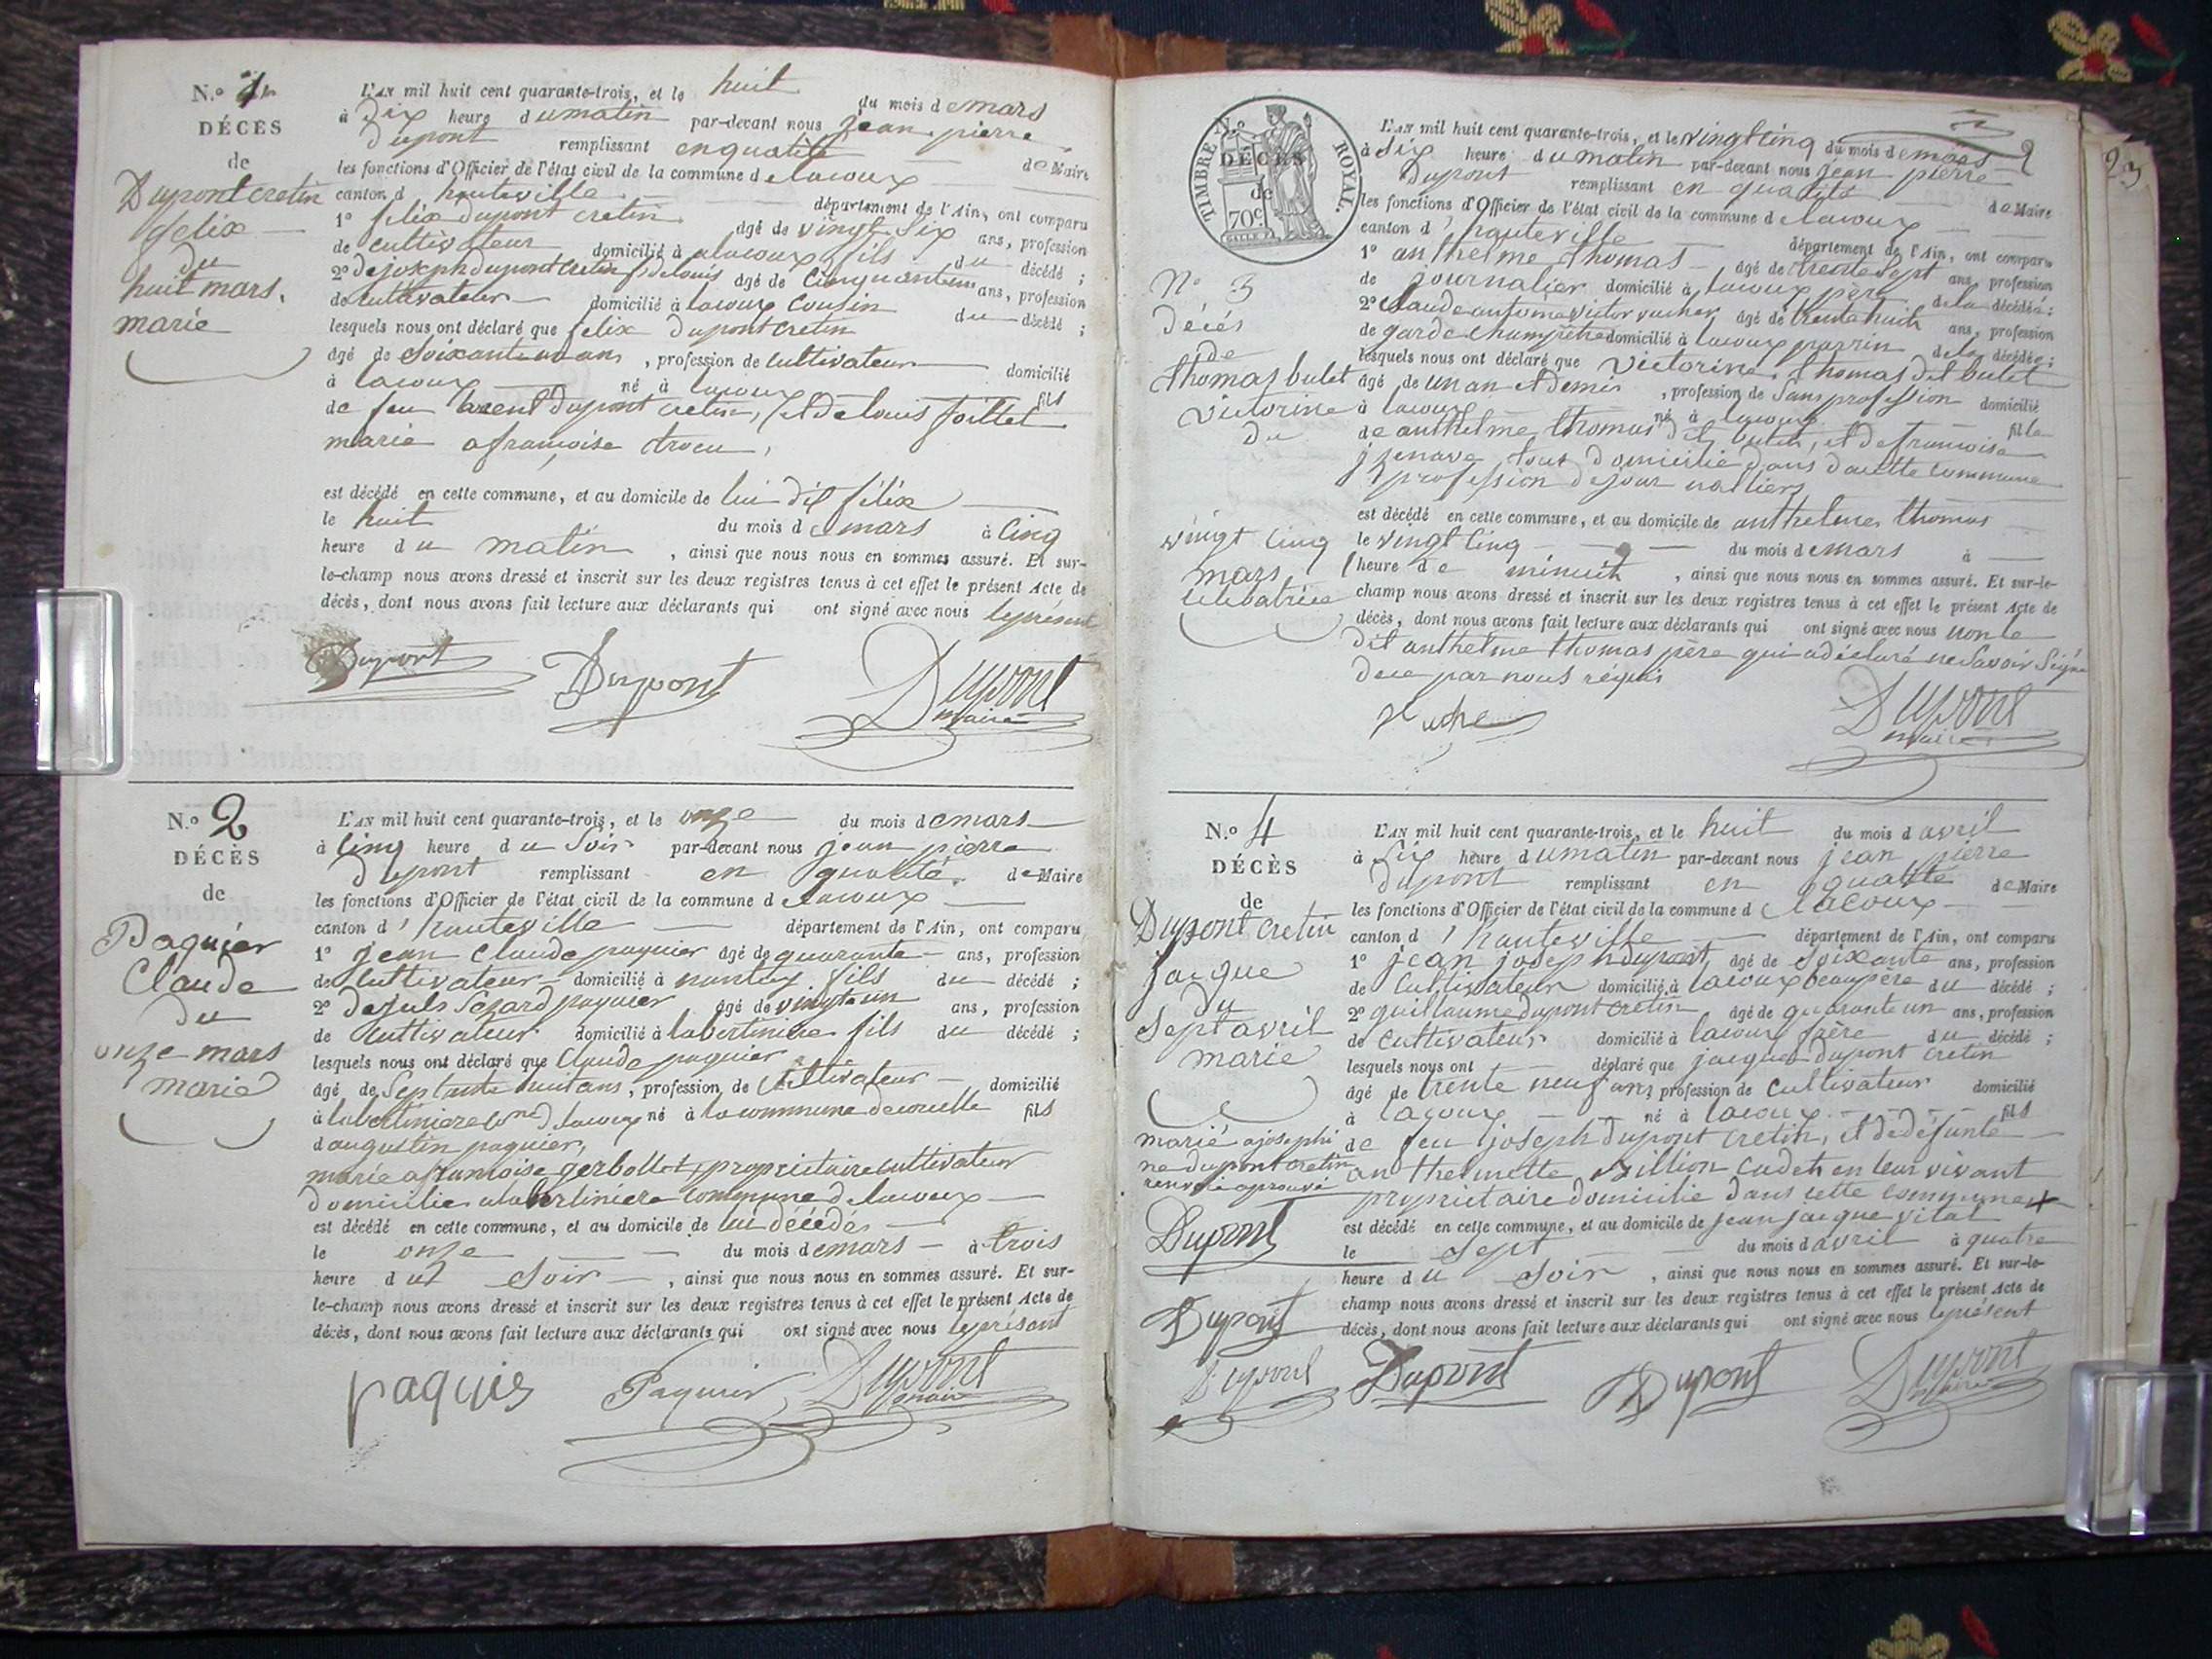 N.º 1
DÉCÈS
de
Dupont cretin
felix
du
huit mars.
marié
L'AN mil huit cent quarante-trois, et le huit du mois de mars
à Dix heure du matin par-devant nous jean pierre
Dupont remplissant en qualité de Maire
les fonctions d'Officier de l'état civil de la commune de lacoux
canton d hauteville département de l'Ain, ont comparu
1º felix dupont cretin âgé de vingt Six ans, profession
de Cultivateur domicilié à alacoux fils du décédé ;
2º de joseph dupont cretin f delouis âgé de Cinquante ans, profession
de Cultivateur domicilié à lacoux Cousin du décédé ;
lesquels nous ont déclaré que felix dupont cretin
âgé de Soixante ans, profession de Cultivateur domicilié
à lacoux né à lacoux fils
de feu dupont cretin, et de louis
marié a françoise trocu,
est décédé en cette commune, et au domicile de lui dit félix
le huit du mois de mars à Cinq
heure du matin, ainsi que nous nous en sommes assuré. Et sur-
le-champ nous avons dressé et inscrit sur les deux registres tenus à cet effet le présent Acte de
décès, dont nous avons fait lecture aux déclarants qui ont signé avec nous le présent
Dupont Dupont Dupont
maire
N.º 2
DÉCÈS
de
Paquier
Claude
du
onze mars
marié
L'AN mil huit cent quarante-trois, et le onze du mois de mars
à Cinq heure du Soir par-devant nous jean pierre
Dupont remplissant en qualité de Maire
les fonctions d'Officier de l'état civil de la commune d elacoux
canton d'hauteville département de l'Ain, ont comparu
1º Jean Claude paquier âgé de quarante ans, profession
de Cultivateur domicilié à nantuy fils du décédé ;
2º paquier âgé de vingt un ans, profession
de Cultivateur domicilié à labertiniere fils du décédé ;
lesquels nous ont déclaré que Claude paquier
âgé de Septante huit ans, profession de Cultivateur domicilié
à labertiniere Cne d lacoux né à la commune de corcelle fils
d augustin paquier,
marié a francoise gerbollet, propriétaire cultivateur
domicilie alabertiniere Commune de lacoux
est décédé en cette commune, et au domicile de lui décédé
le onze du mois de mars à trois
heure du Soir, ainsi que nous nous en sommes assuré. Et sur-
le-champ nous avons dressé et inscrit sur les deux registres tenus à cet effet le présent Acte de
décès, dont nous avons fait lecture aux déclarants qui ont signé avec nous le présent
paquis Paquier Dupont
maire
TIMBRE ROYAL.
70c
N.º
DÉCÈS
de
Nº 3
Décés
de
thomas bulet
victorine
du
vingt cinq
mars
celibatrice
2
23
L'AN mil huit cent quarante-trois, et le vingt cinq du mois de mars
à Six heure du matin par-devant nous jean pierre
Dupont remplissant en qualité de Maire
les fonctions d'Officier de l'état civil de la commune de lacoux
canton d'hauteville département de l'Ain, ont comparu
1º anthelme thomas âgé de trente sept ans, profession
de journalier domicilié à lacoux père de la décédée ;
2º Claude antoine victor vucher âgé de trente huit ans, profession
de garde champêtre domicilié à lacoux parrin de la décédée ;
lesquels nous ont déclaré que victorine thomas dit bulet
âgé de un an et demis, profession de Sans profession domicilié
à lacoux né à lacoux fille
de anthelme thomas dit bulet, et de françoise
tous domicilié dans daitte commune
profession de jour nalliers
est décédé en cette commune, et au domicile de anthelme thomas
le vingt cinq du mois de mars à
heure de minuit, ainsi que nous nous en sommes assuré. Et sur-le-
champ nous avons dressé et inscrit sur les deux registres tenus à cet effet le présent Acte de
décès, dont nous avons fait lecture aux déclarants qui ont signé avec nous non le
dit anthelme thomas père qui a déclaré ne Savoir Signé
dece par nous réquis
Vucher Dupont
maire
N.º 4
DÉCÈS
de
Dupont cretin
jacque
du
Sept avril
marié
marié a josephi
ne dupont cretin
renvoie aprouvé
Dupont
Dupont
Dupont
L'AN mil huit cent quarante-trois, et le huit du mois d avril
à Six heure du matin par-devant nous jean pierre
Dupont remplissant en qualité de Maire
les fonctions d'Officier de l'état civil de la commune d elacoux
canton d'hauteville département de l'Ain, ont comparu
1º jean joseph dupont, âgé de Soixante ans, profession
de Cultivateur domicilié à lacoux beaupère du décédé ;
2º guillaume dupont cretin âgé de quarante un ans, profession
de cultivateur domicilié à lacoux frère du décédé ;
lesquels nous ont déclaré que jacques dupont cretin
âgé de trente neuf ans, profession de cultivateur domicilié
à lacoux né à lacoux fils
de feu joseph dupont cretin, et de défunte
anthelmette Billion Cadet en leur vivant
proprietaire domicilie dans cette commune
est décédé en cette commune, et au domicile de jean jacque vital
le Sept du mois d avril à quatre
heure du Soir, ainsi que nous nous en sommes assuré. Et sur-le-
champ nous avons dressé et inscrit sur les deux registres tenus à cet effet le présent Acte de
décès, dont nous avons fait lecture aux déclarants qui ont signé avec nous le présent
Dupont Dupont Dupont
maire